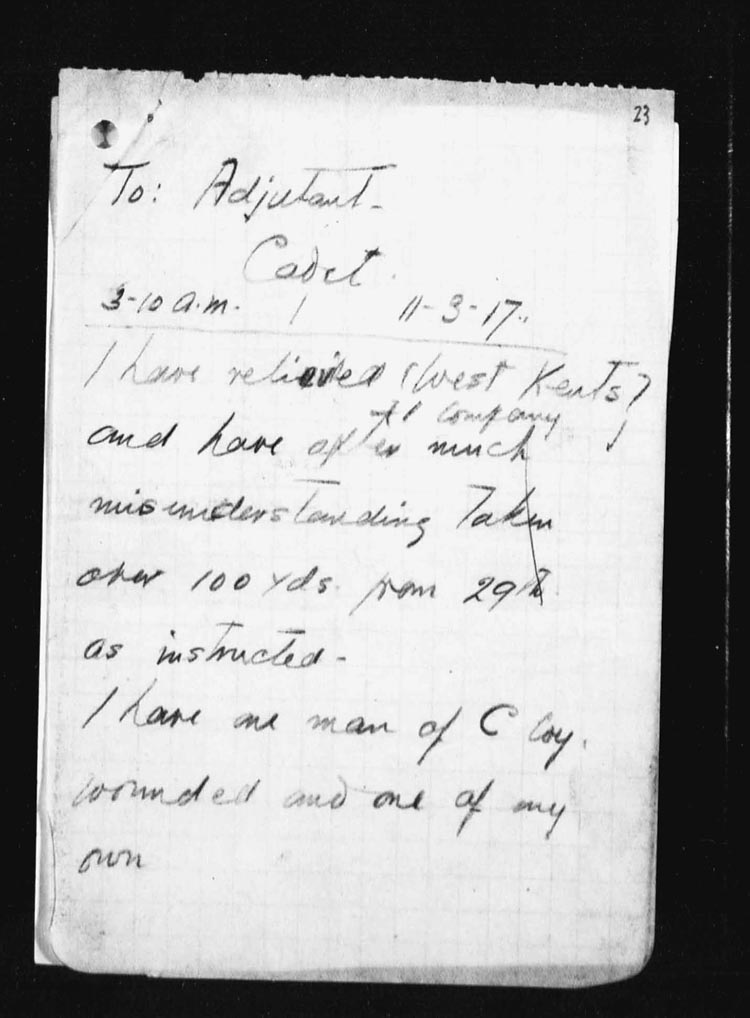 23
To: Adjutant-
Cadet.
3-10 a.m. 11-3-17.
I have relieved (West Kents)
company
and have after much
misunderstanding taken
over 100 yds. from 29th
as instructed-
I have one man of C Coy.
wounded and one of my
own